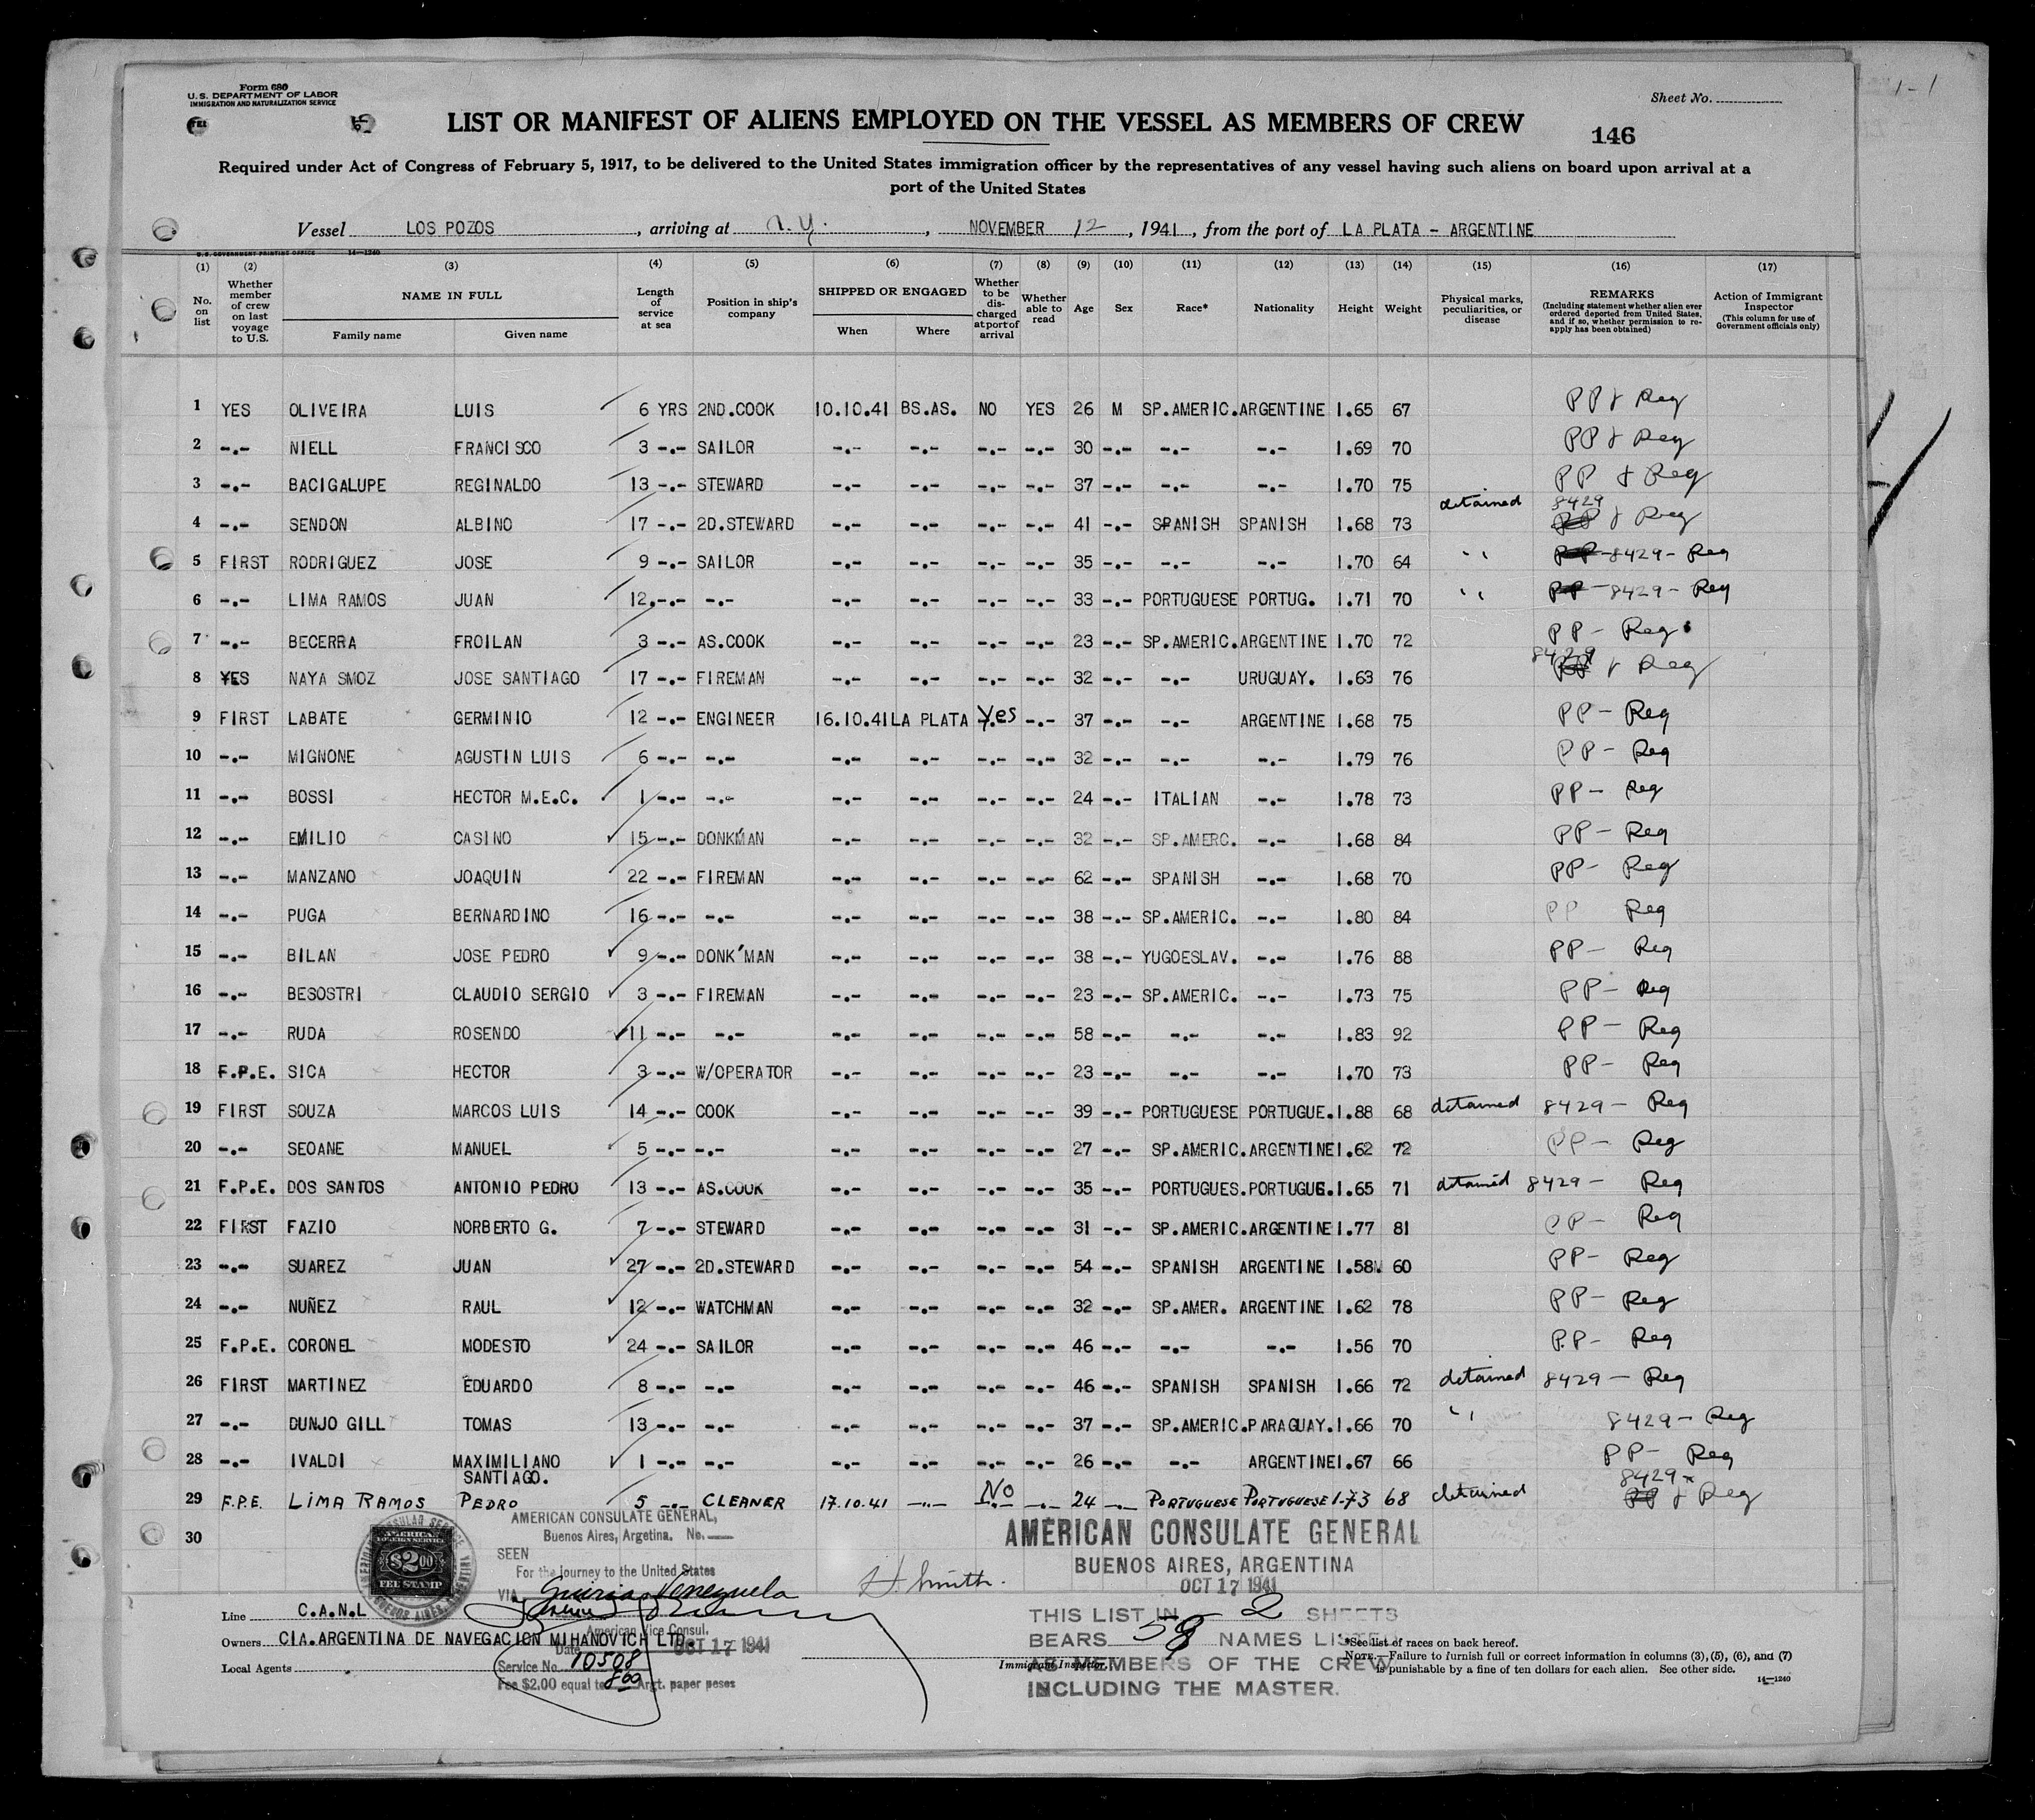 Form 680
U.S. DEPARTMENT OF LABOR
IMMIGRATION AND NATURALIZATION SERVICE
Sheet No.
1-1
LIST OR MANIFEST OF ALIENS EMPLOYED ON THE VESSEL AS MEMBERS OF CREW
146
Required under Act of Congress of February 5, 1917, to be delivered to the United States immigration officer by the representatives of any vessel having such aliens on board upon arrival at a
port of the United States
Vessel LOS POZOS, arriving at N.Y., NOVEMBER 12, 1941, from the port of LA PLATA - ARGENTINE
U.S. GOVERNMENT PRINTING OFFICE 14-1240
(1) (2) (3) (4) (5) (6) (7) (8) (9) (10) (11) (12) (13) (14) (15) (16) (17)
No. on list
Whether member of crew on last voyage to U.S.
NAME IN FULL
Family name Given name
Length of service at sea
Position in ship's company
SHIPPED OR ENGAGED
When Where
Whether to be discharged at port of arrival
Whether able to read
Age Sex Race* Nationality Height Weight
Physical marks, peculiarities, or disease
REMARKS
(Including statement whether alien ever ordered deported from United States, and if so, whether permission to re-apply has been obtained)
Action of Immigrant Inspector
(This column for use of Government officials only)
1 YES OLIVEIRA LUIS 6 YRS 2ND.COOK 10.10.41 BS.AS. NO YES 26 M SP.AMERIC. ARGENTINE 1.65 67 PP & Reg
2 -.- NIELL FRANCISCO 3 -.- SAILOR -.- -.- -.- -.- 30 -.- -.- -.- 1.69 70 PP & Reg
3 -.- BACIGALUPE REGINALDO 13 -.- STEWARD -.- -.- -.- -.- 37 -.- -.- -.- 1.70 75 PP & Reg
4 -.- SENDON ALBINO 17 -.- 2D.STEWARD -.- -.- -.- -.- 41 -.- SPANISH SPANISH 1.68 73 detained 8429 PP & Reg
5 FIRST RODRIGUEZ JOSE 9 -.- SAILOR -.- -.- -.- -.- 35 -.- -.- -.- 1.70 64 " PP - 8429 - Reg
6 -.- LIMA RAMOS JUAN 12.-.- -.- -.- -.- -.- -.- 33 -.- PORTUGUESE PORTUG. 1.71 70 " PP - 8429 - Reg
7 -.- BECERRA FROILAN 3 -.- AS.COOK -.- -.- -.- -.- 23 -.- SP.AMERIC. ARGENTINE 1.70 72 PP - Reg
8 YES NAYA SMOZ JOSE SANTIAGO 17 -.- FIREMAN -.- -.- -.- -.- 32 -.- -.- URUGUAY. 1.63 76 8429 PP & Reg
9 FIRST LABATE GERMINIO 12 -.- ENGINEER 16.10.41 LA PLATA Yes -.- 37 -.- -.- ARGENTINE 1.68 75 PP - Reg
10 -.- MIGNONE AGUSTIN LUIS 6 -.- -.- -.- -.- -.- -.- 32 -.- -.- -.- 1.79 76 PP - Reg
11 -.- BOSSI HECTOR M.E.C. 1 -.- -.- -.- -.- -.- -.- 24 -.- ITALIAN -.- 1.78 73 PP - Reg
12 -.- EMILIO CASINO 15 -.- DONK'MAN -.- -.- -.- -.- 32 -.- SP.AMERC. -.- 1.68 84 PP - Reg
13 -.- MANZANO JOAQUIN 22 -.- FIREMAN -.- -.- -.- -.- 62 -.- SPANISH -.- 1.68 70 PP - Reg
14 -.- PUGA BERNARDINO 16 -.- -.- -.- -.- -.- -.- 38 -.- SP.AMERIC. -.- 1.80 84 PP Reg
15 -.- BILAN JOSE PEDRO 9 -.- DONK'MAN -.- -.- -.- -.- 38 -.- YUGOESLAV. -.- 1.76 88 PP - Reg
16 -.- BESOSTRI CLAUDIO SERGIO 3 -.- FIREMAN -.- -.- -.- -.- 23 -.- SP.AMERIC. -.- 1.73 75 PP - Reg
17 -.- RUDA ROSENDO 11 -.- -.- -.- -.- -.- -.- 58 -.- -.- -.- 1.83 92 PP - Reg
18 F.P.E. SICA HECTOR 3 -.- W/OPERATOR -.- -.- -.- -.- 23 -.- -.- -.- 1.70 73 PP - Reg
19 FIRST SOUZA MARCOS LUIS 14 -.- COOK -.- -.- -.- -.- 39 -.- PORTUGUESE PORTUGUE. 1.88 68 detained 8429 - Reg
20 -.- SEOANE MANUEL 5 -.- -.- -.- -.- -.- -.- 27 -.- SP.AMERIC. ARGENTINE 1.62 72 PP - Reg
21 F.P.E. DOS SANTOS ANTONIO PEDRO 13 -.- AS.COOK -.- -.- -.- -.- 35 -.- PORTUGUES. PORTUGUE. 1.65 71 detained 8429 - Reg
22 FIRST FAZIO NORBERTO G. 7 -.- STEWARD -.- -.- -.- -.- 31 -.- SP.AMERIC. ARGENTINE 1.77 81 PP - Reg
23 -.- SUAREZ JUAN 27 -.- 2D.STEWARD -.- -.- -.- -.- 54 -.- SPANISH ARGENTINE 1.58 60 PP - Reg
24 -.- NUÑEZ RAUL 12 -.- WATCHMAN -.- -.- -.- -.- 32 -.- SP.AMER. ARGENTINE 1.62 78 PP - Reg
25 F.P.E. CORONEL MODESTO 24 -.- SAILOR -.- -.- -.- -.- 46 -.- -.- -.- 1.56 70 P.P - Reg
26 FIRST MARTINEZ EDUARDO 8 -.- -.- -.- -.- -.- -.- 46 -.- SPANISH SPANISH 1.66 72 detained 8429 - Reg
27 -.- DUNJO GILL TOMAS 13 -.- -.- -.- -.- -.- -.- 37 -.- SP.AMERIC. PARAGUAY. 1.66 70 " 8429 - Reg
28 -.- IVALDI MAXIMILIANO SANTIAGO. 1 -.- -.- -.- -.- -.- -.- 26 -.- -.- ARGENTINE 1.67 66 PP - Reg
29 F.P.E. LIMA RAMOS PEDRO 5 -.- CLEANER 17.10.41 -.- No -.- 24 -.- PORTUGUESE PORTUGUESE 1-73 68 detained 8429 PP & Reg
30
AMERICAN CONSULATE GENERAL,
Buenos Aires, Argetina. No.
SEEN
For the journey to the United States
VIA Guiria Venezuela
American Vice Consul.
Date OCT 17 1941
Service No. 10508
Fee $2.00 equal to 8.00 Argt. paper pesos
AMERICAN FOREIGN SERVICE
$2.00
FEE STAMP
H. Smith.
AMERICAN CONSULATE GENERAL
BUENOS AIRES, ARGENTINA
OCT 17 1941
THIS LIST IN 2 SHEETS
BEARS 58 NAMES LISTED
AS MEMBERS OF THE CREW
INCLUDING THE MASTER.
Line C.A.N.L
Owners CIA.ARGENTINA DE NAVEGACION MIHANOVICH LTD.
Local Agents
Immigrant Inspector.
*See list of races on back hereof.
NOTE.—Failure to furnish full or correct information in columns (3), (5), (6), and (7)
is punishable by a fine of ten dollars for each alien. See other side.
14-1240